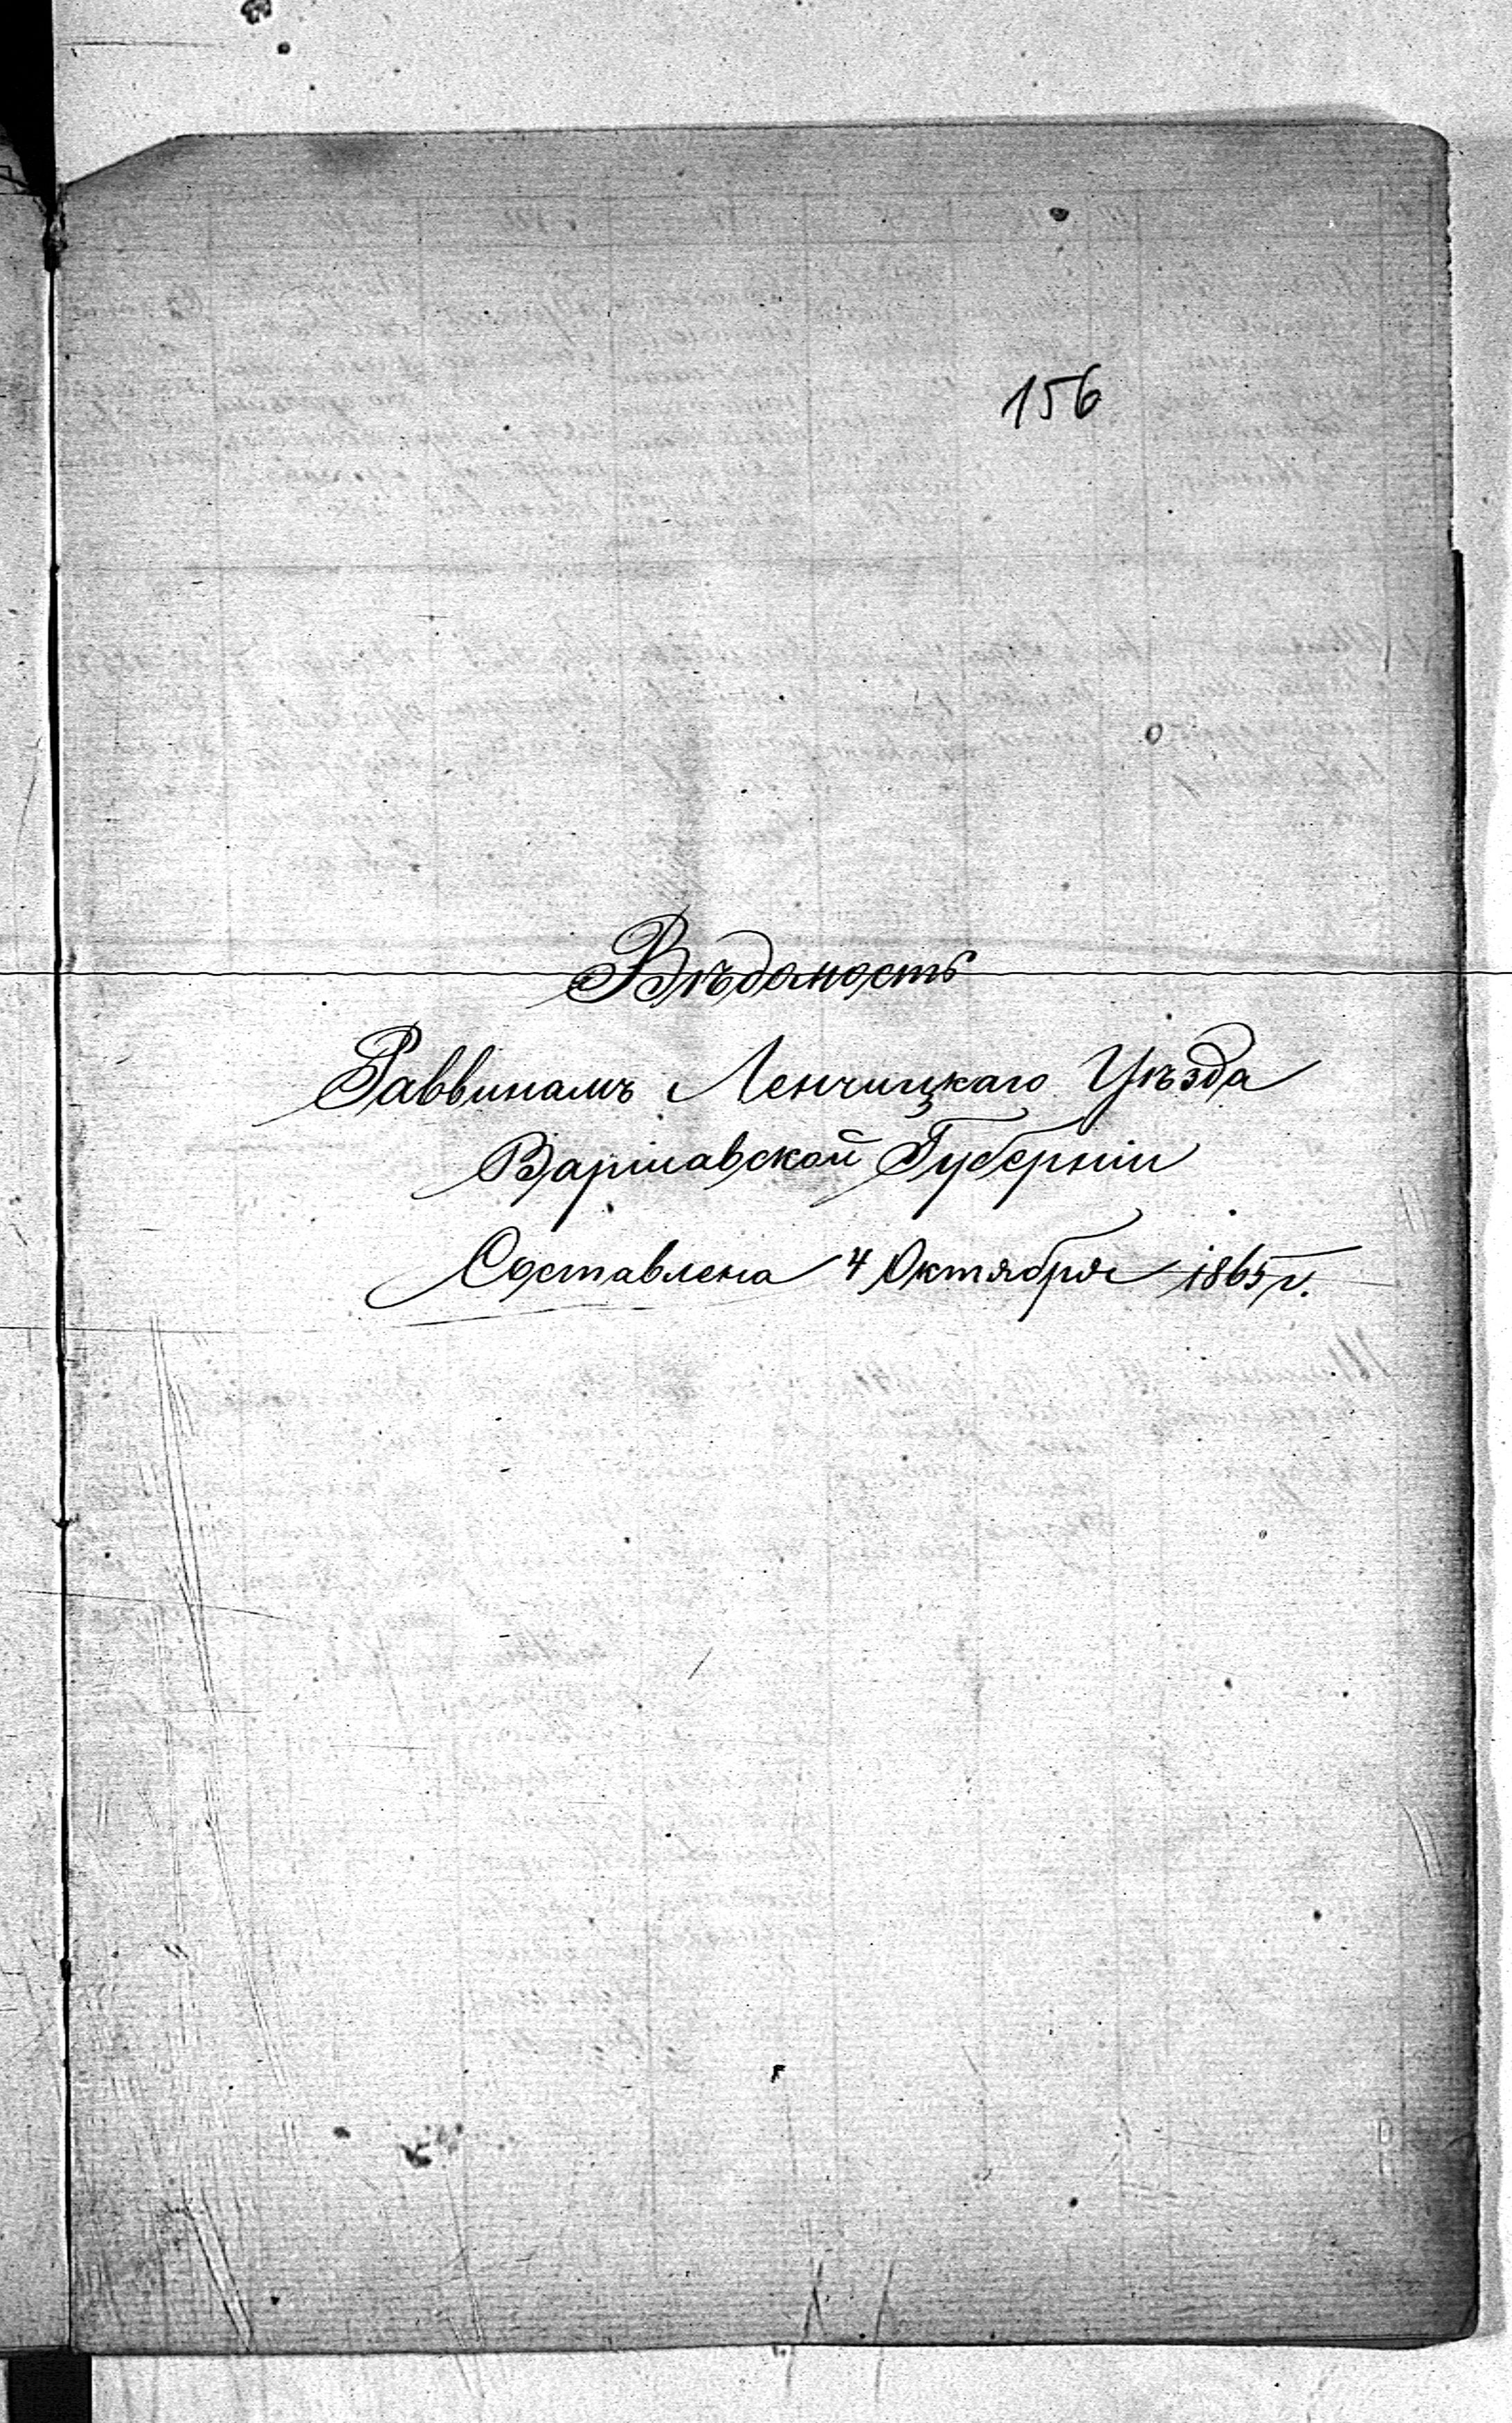 156
Вѣдомость
Раввинамъ Ленчицкаго Уѣзда
Варшавской Губерніи
Составлена 4 Октября 1865 г.